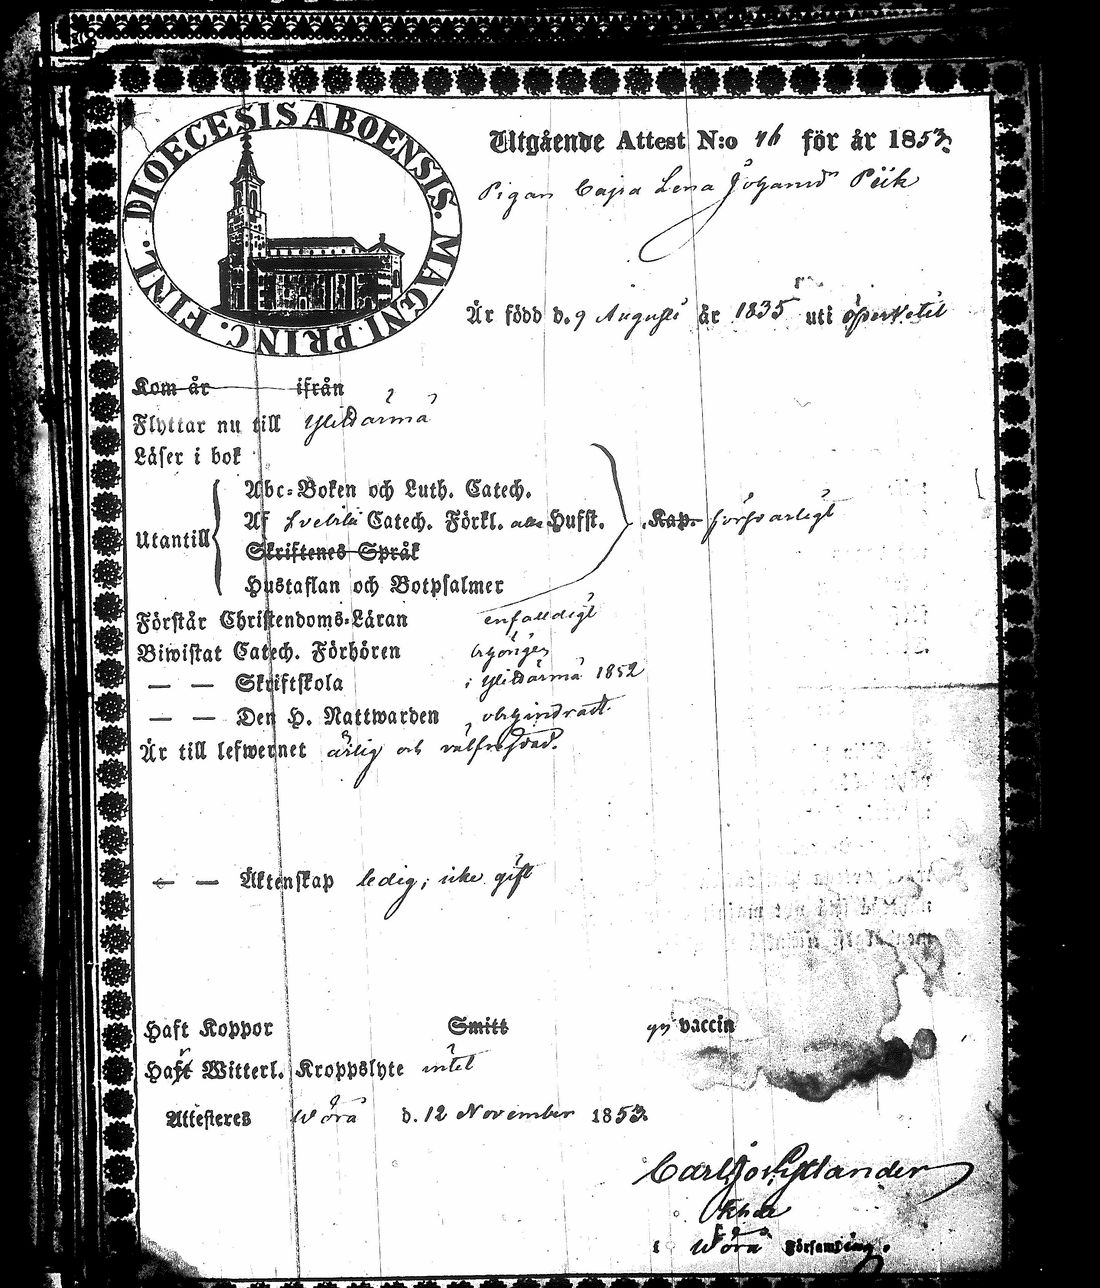 DIOECESIS ABOENSIS. MAGNI PRINC. FINL.
Utgående Attest N:o 76 för år 1853.
Pigan Cajsa Lena Johansdr Piik
Är född d. 9 Augusti år 1835 uti
Kom år ifrån
Flyttar nu till Ylihärmä
Läser i bok
Abc-Boken och Luth. Catech.
Utantill
Af Svebilii Catech. Förkl. Hufst. Kap. försvarligt
Skriftenes Språk
Hustaflan och Botpsalmer
Förstår Christendoms-Läran enfaldigt
Biwistat Catech. Förhören
— — Skriftskola i Ylihärmä 1852
— — Den H. Nattwarden obehindradt
Är till lefwernet ärlig och välfrejdad.
— — Äktenskap ledig, icke gift
Haft Koppor Smitt gn vaccin
Haft Witterl. Kroppslyte intet
Attesteres Wörå d. 12 November 1853.
Carl Rylander
Khde
i Wörå Församling.